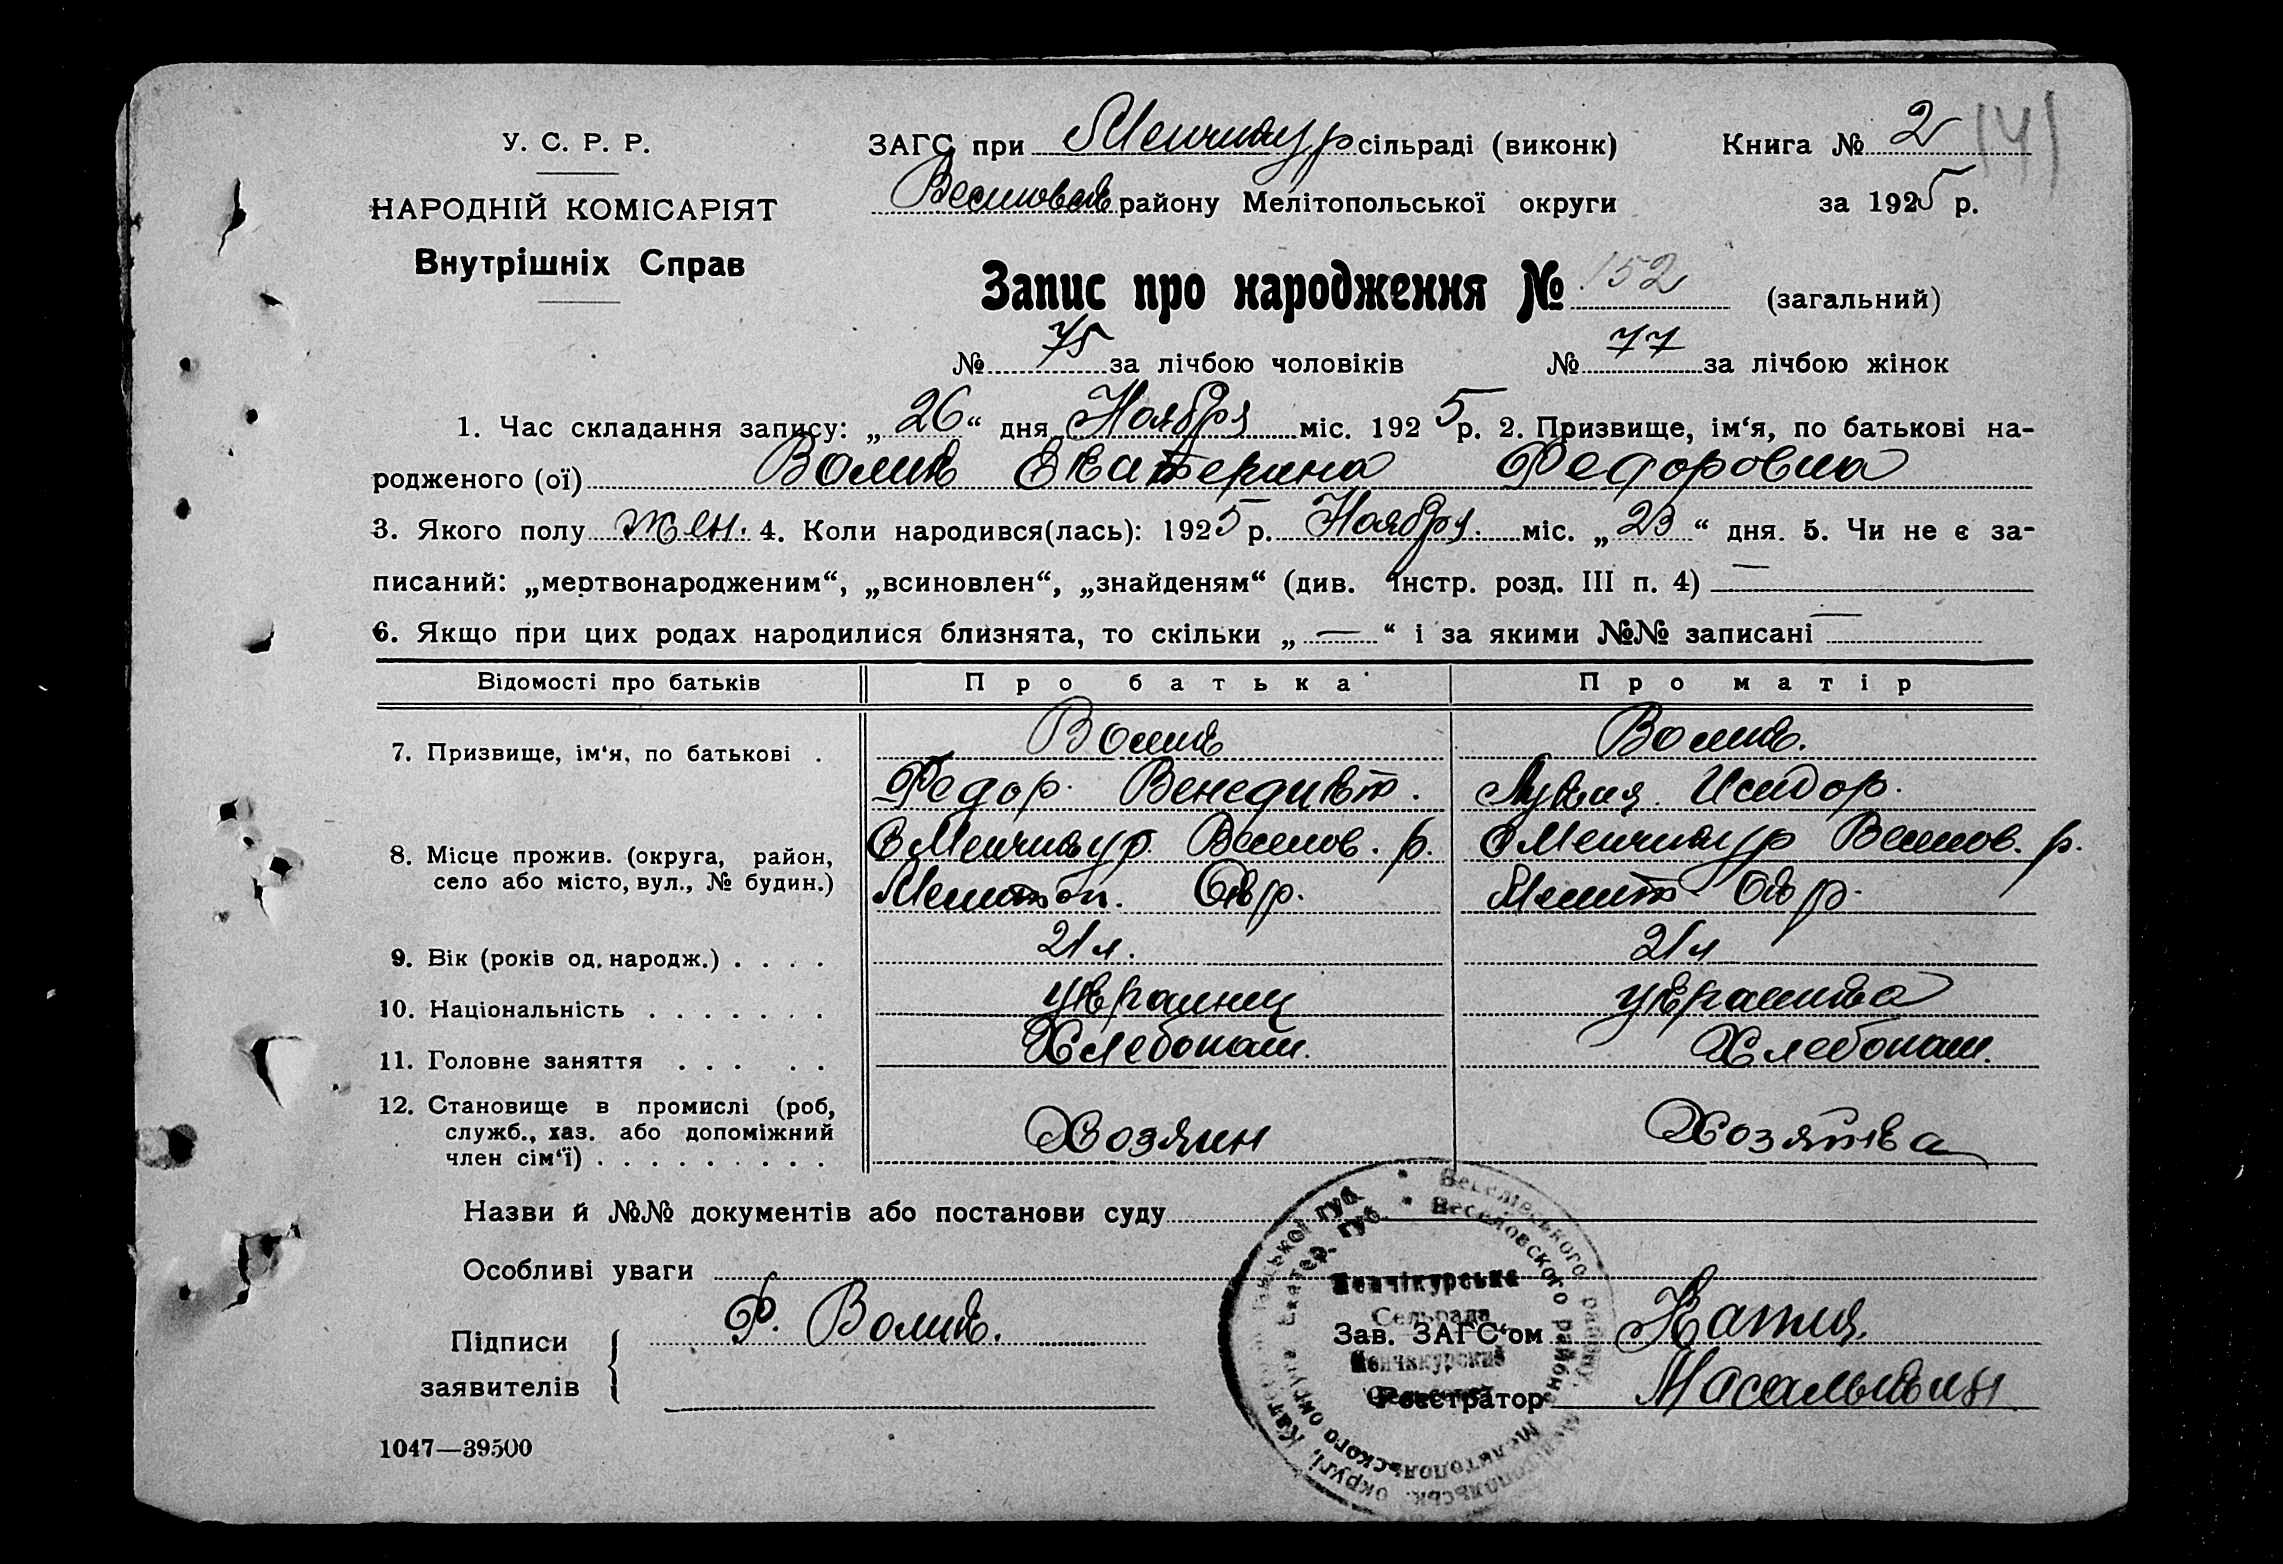 У. С. Р. Р.
НАРОДНІЙ КОМІСАРІЯТ
Внутрішніх Справ
ЗАГС при Менчикур сільраді (виконк)
Веселовск району Мелітопольської округи
Книга № 2 141
за 1925 р.
Запис про народження № 152 (загальний)
№ 75 за лічбою чоловіків № 77 за лічбою жінок
1. Час складання запису: „26“ дня Ноября міс. 1925 р. 2. Призвище, ім‘я, по батькові на-
родженого (ої) Волик Екатерина Федоровна
3. Якого полу жен. 4. Коли народився(лась): 1925 р. Ноября міс. „23“ дня. 5. Чи не є за-
писаний: „мертвонародженим“, „всиновлен“, „знайденям“ (див. Інстр. розд. III п. 4) —
6. Якщо при цих родах народилися близнята, то скільки „—“ і за якими №№ записані —
Відомості про батьків Про батька Про матір
7. Призвище, ім‘я, по батькові . Волик Волик.
Федор. Венедикт. Исидор.
8. Місце прожив. (округа, район, с Менчикур Веселов. р. с Менчикур Веселов. р.
село або місто, вул., № будин.) Мелитоп. Окр. Мелит Окр.
9. Вік (років од. народж.) . . . . 21 л. 21 л
10. Національність . . . . . . . украинец украинка
11. Головне заняття . . . . . Хлебопаш. Хлебопаш.
12. Становище в промислі (роб,
служб., хаз. або допоміжний Хозяин Хозяйка
член сім‘ї) . . . . . . . . .
Назви й №№ документів або постанови суду
Особливі уваги
Підписи заявителів Ф. Волик.
Зав. ЗАГС‘ом
Реєстратор Масалыкин
Менчікурська
Сельрада
Веселовского района
Мелитопольского округа Екатер. губ.
1047—39500